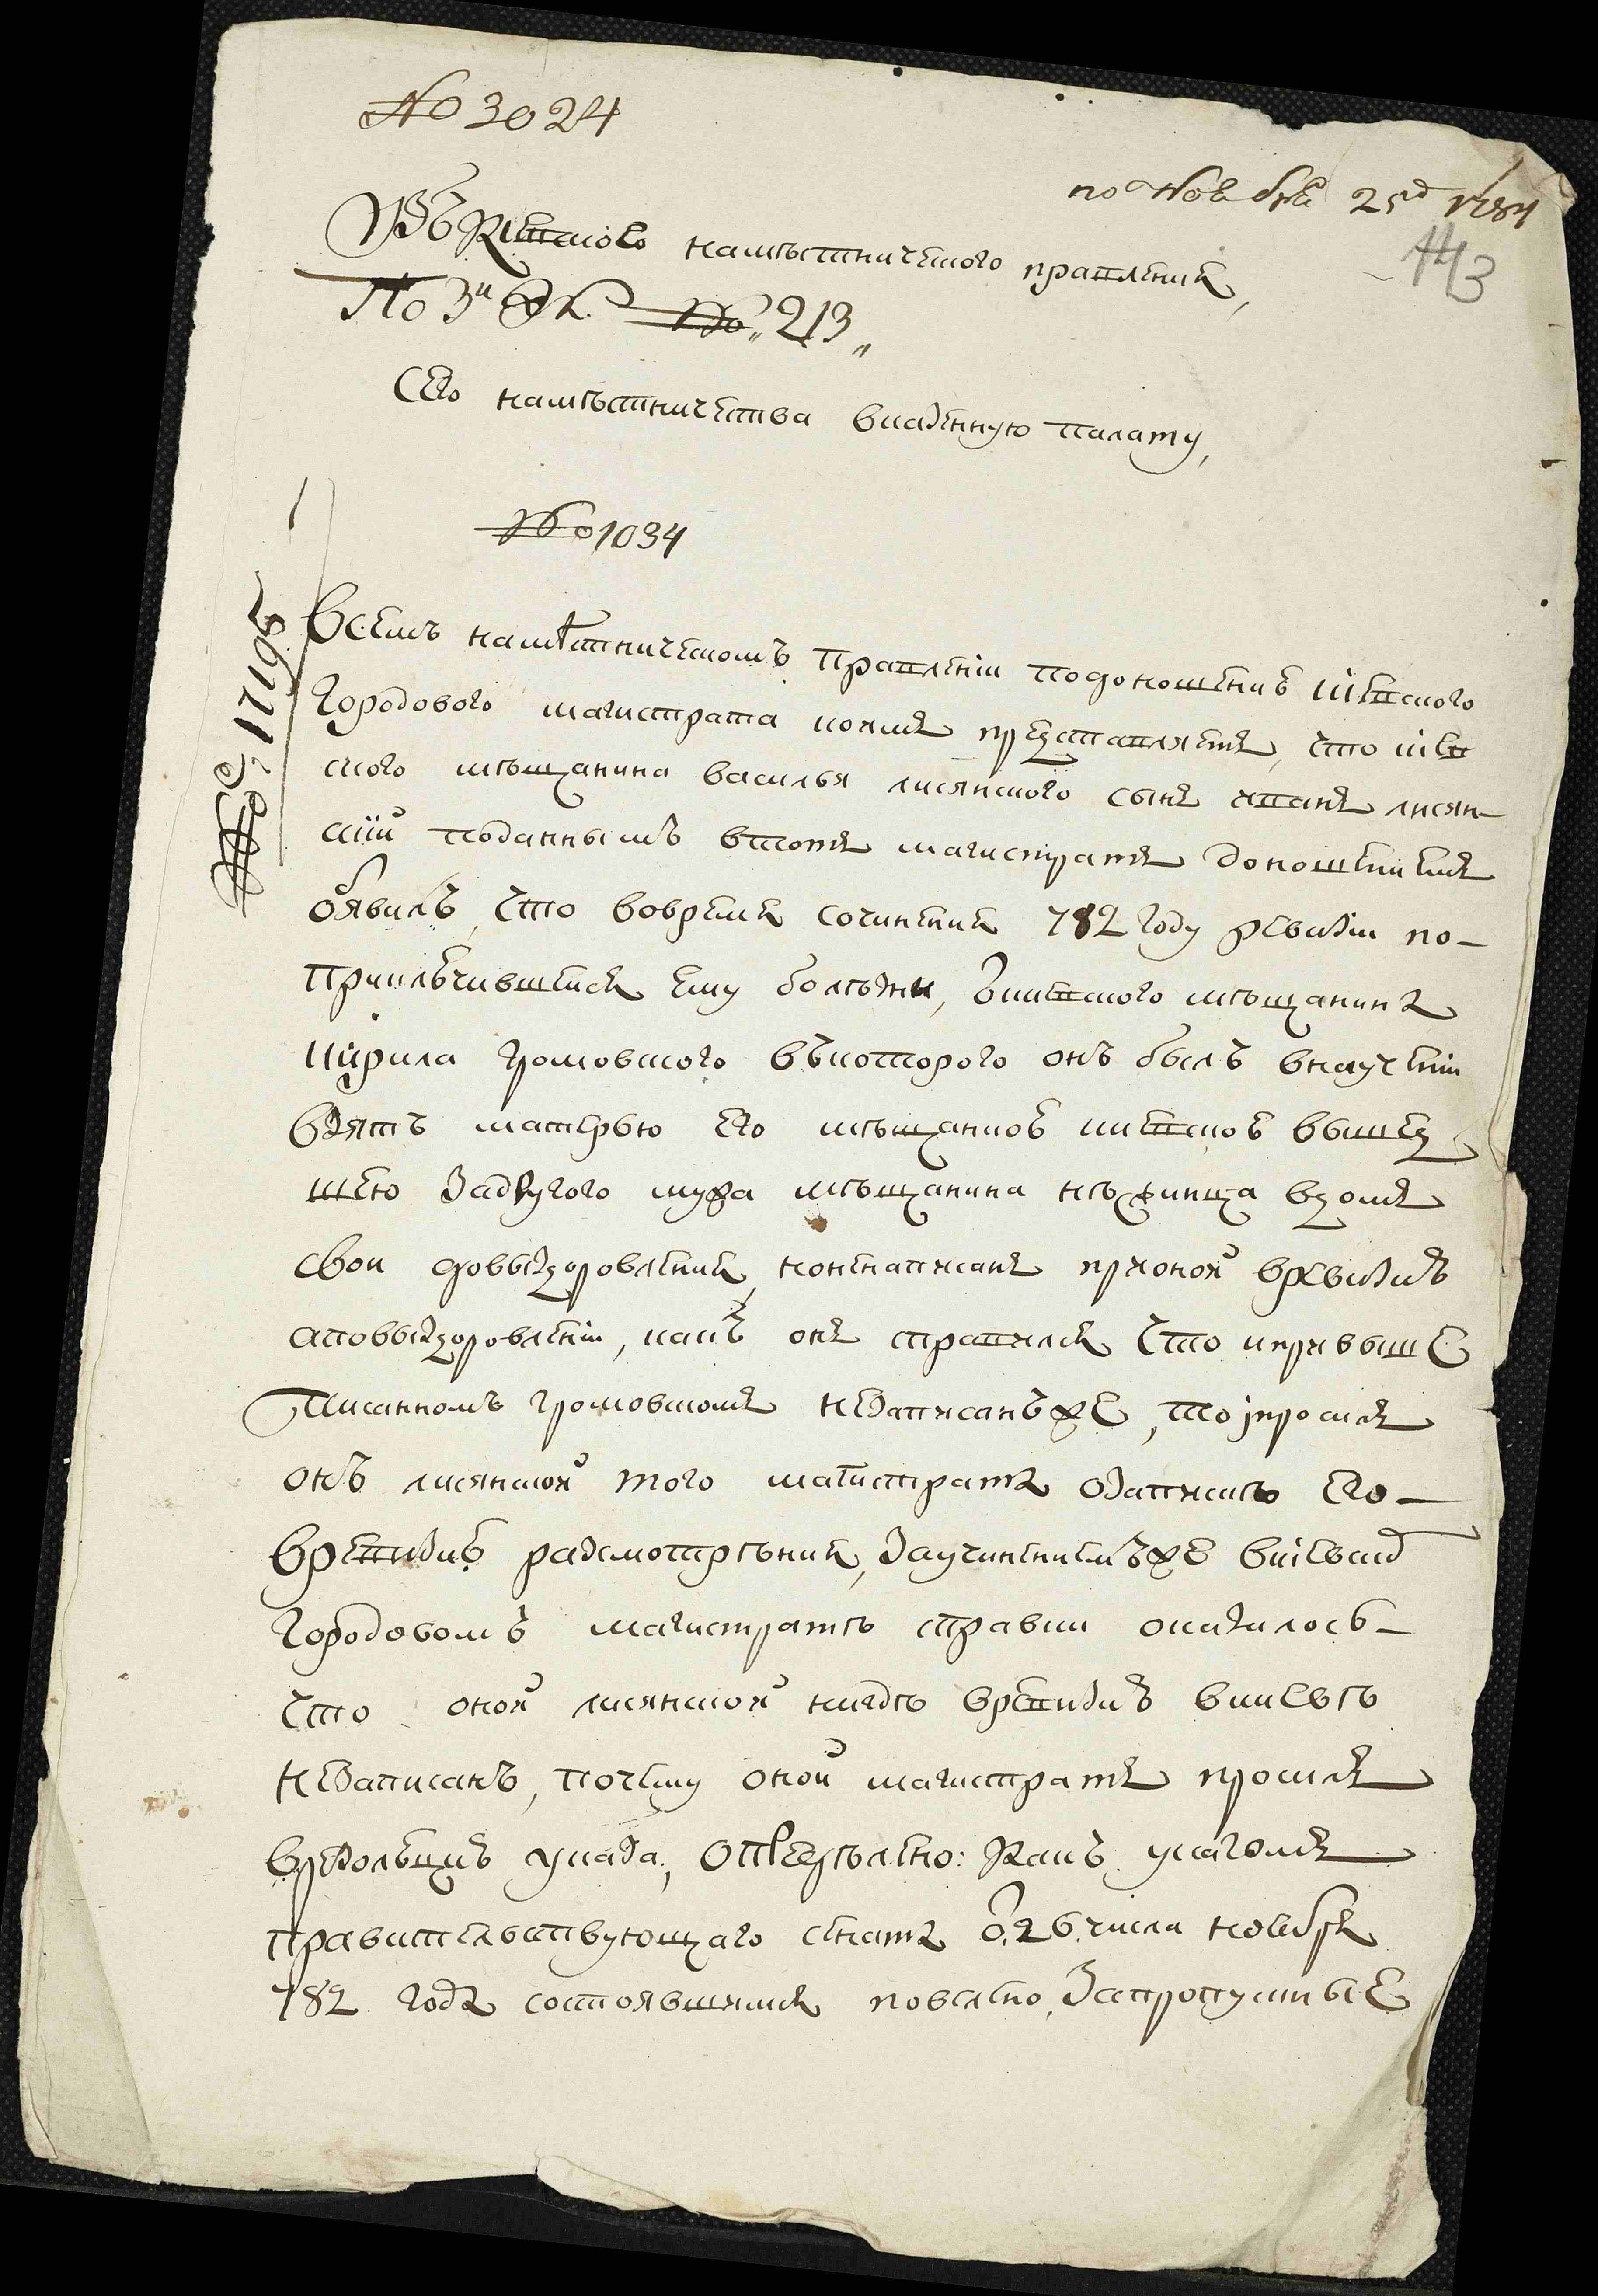 № 3024
по ноября 25 д 1784
43
Изъ Киевского наместнического правления,
По 3й Эк. №„ 213„
Его наместничества вказенную палату,
№ 1034
№ 17195
Всемъ наместническомъ правлении подоношению киевского
городового магистрата коимъ представляетъ, что киев
ского мещанина василья лисянского сынъ иванъ лисян–
ский поданнымъ втотъ магистратъ доношениемъ
обявилъ, что вовремя сочинения 782 году ревизии по–
приключившейся ему болезни, от киевского мещанина
кирила громовского вкоторого онъ былъ внаучении
взятъ матерью его мещанкою киевскою вышед
шею задругого мужа мещанина нежинца вдомъ
свой довыздоровления, нонепаписанъ прионой вревизию
аповыздоровлении, какъ онъ справился что ипривыше
писанномъ громовскомъ незаписанъже, то ипросилъ
онъ лисянской того магистрата озаписке его–
вревизию разсмотрения, заучинениемъже вкиевском
городовомъ магистрате справки оказалось–
что оной лисянской нигде вревизию вкиеве
незаписанъ, почему оной магистратъ просилъ
врезолюцию указа, Определено: Какъ указомъ
правителствующаго сената от 26 числа ноября
782 года состоявшимся повелено, Запропускные